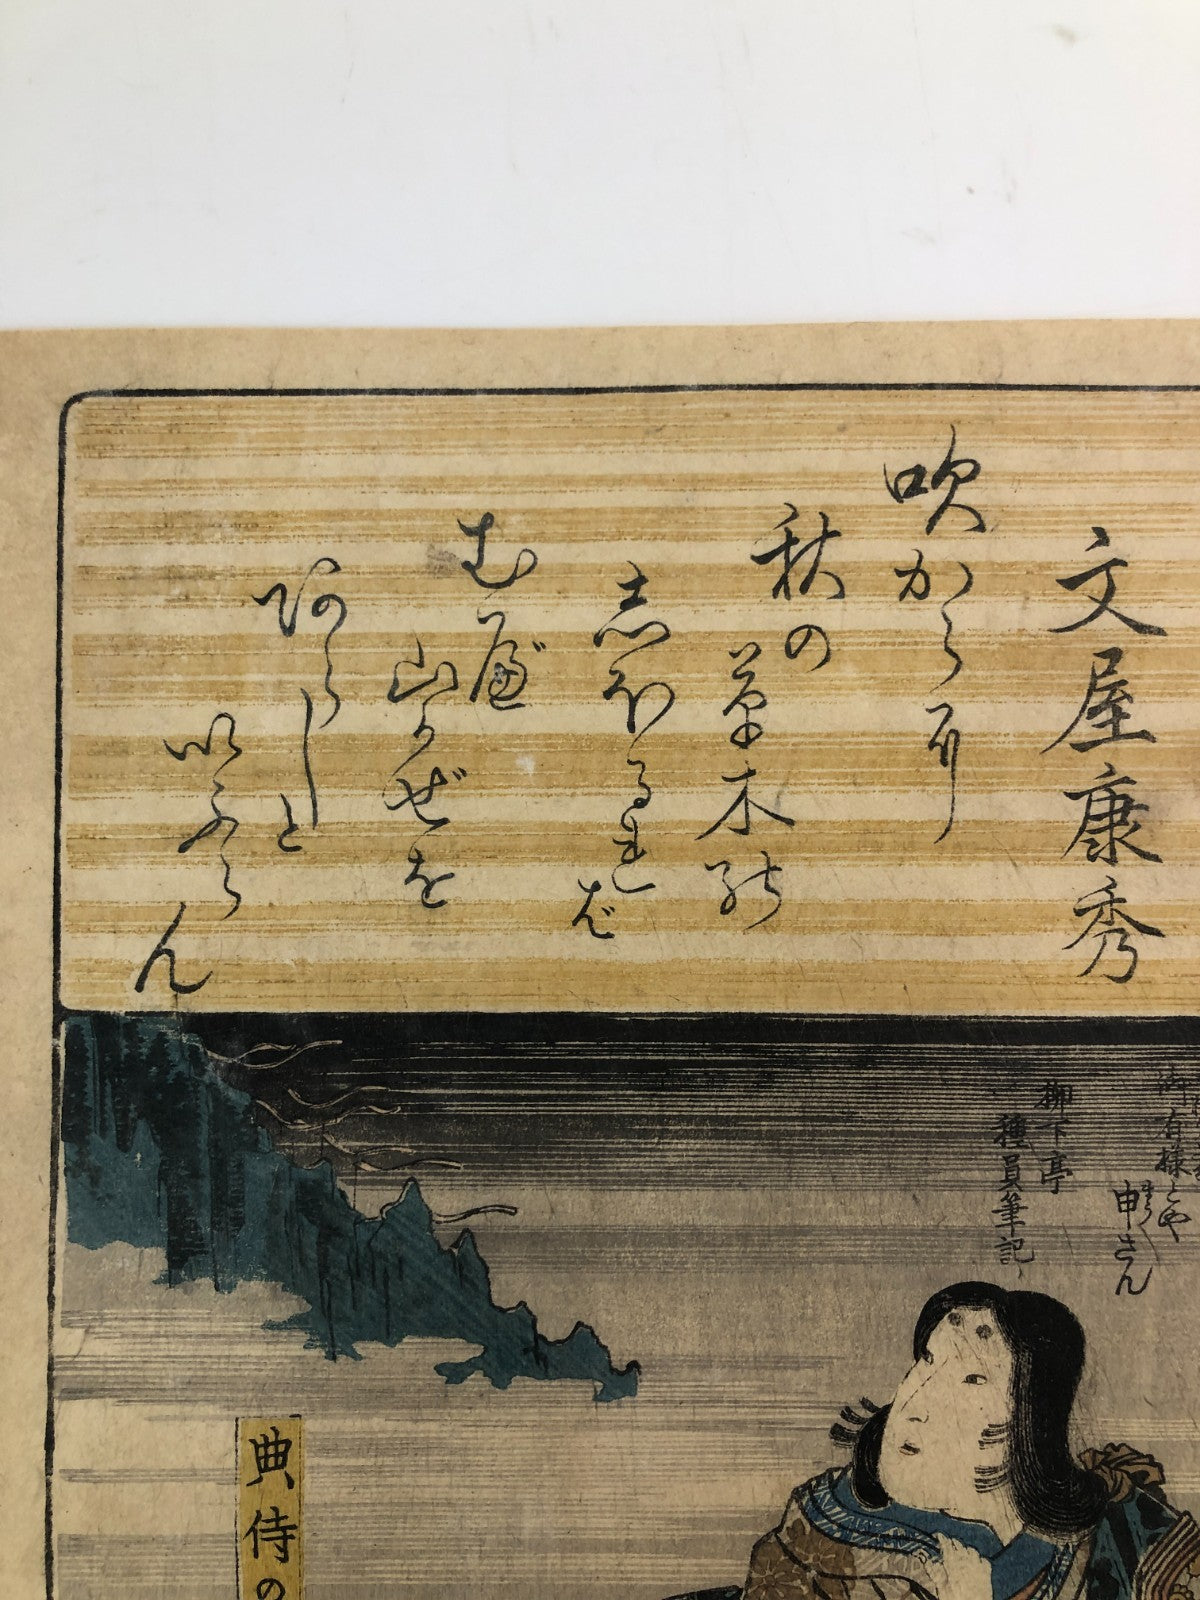 文屋康秀
吹からに
秋の
草木の
志ほるれ
ば
むべ
山かぜを
あらしと
いふらん
御有様とや
申さん
柳下亭
種員筆記
典侍の